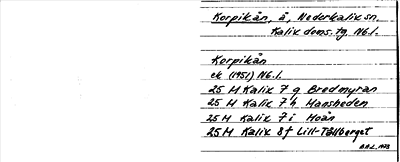 Korpikån, å, Nederkalix sn.
Kalix doms. tg. Nb.l.
Korpikån
ek (1951) Nb.l.
25 M Kalix 7 g Bredmyran
25 M Kalix 7 h Mansheden
25 M Kalix 7 i Moån
25 M Kalix 8 f Lill-Tållberget
1973